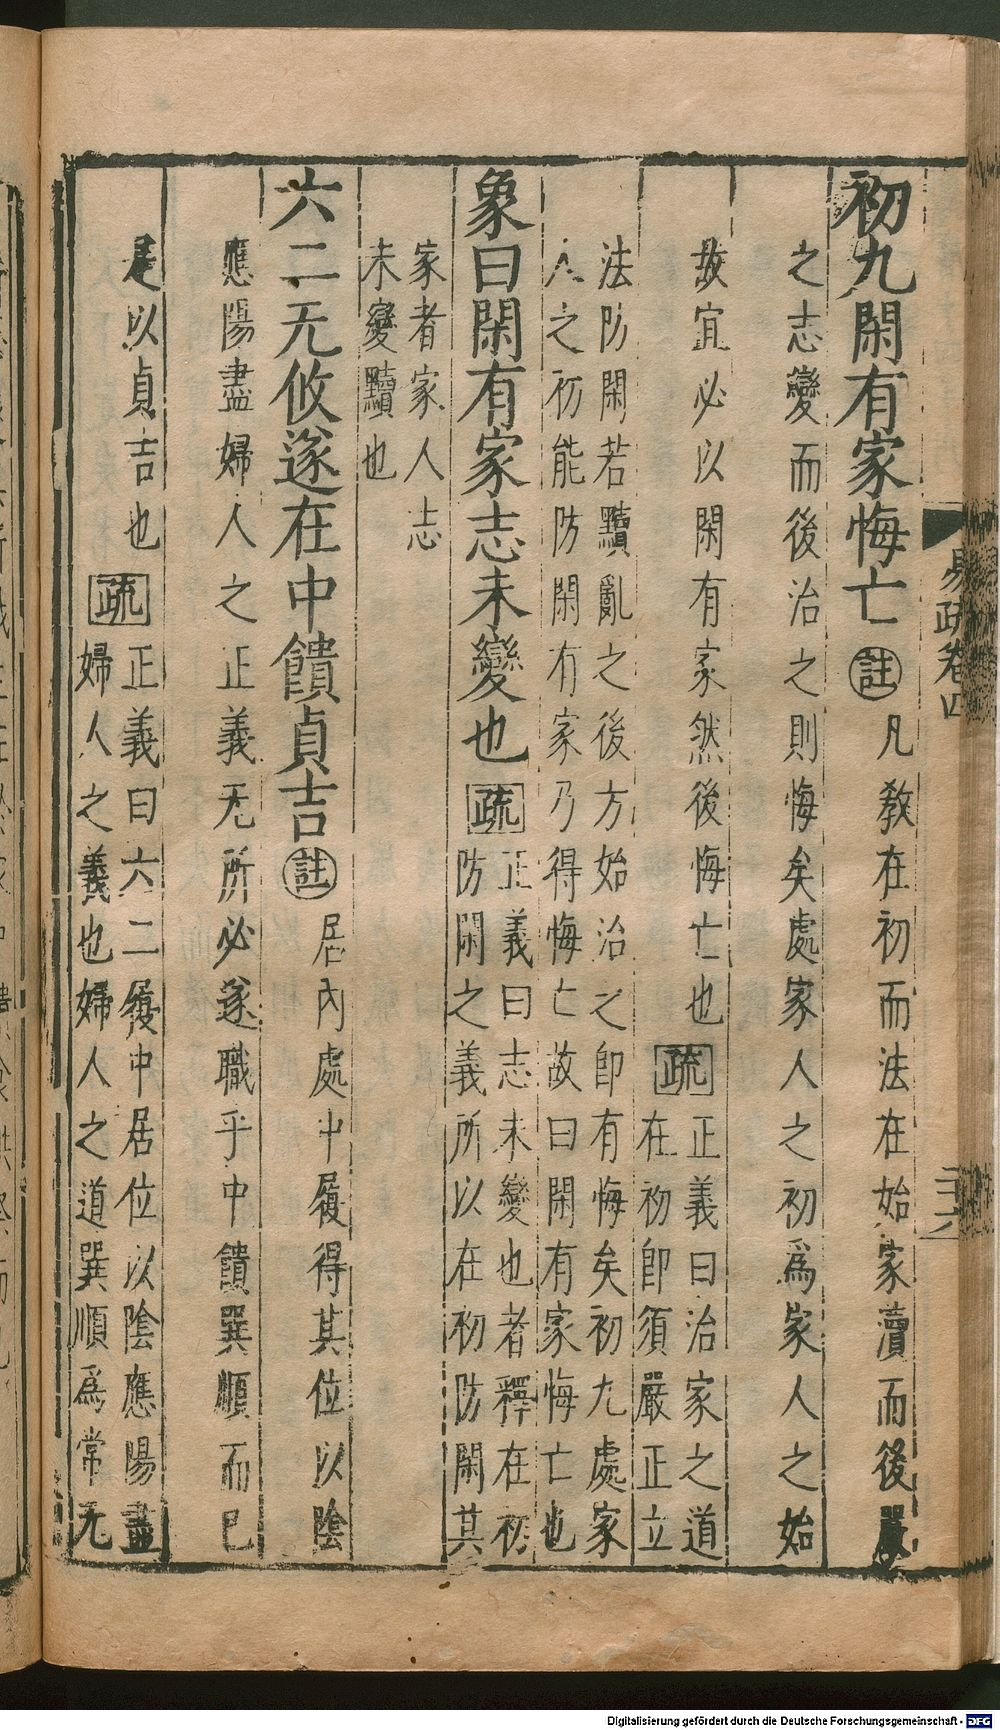 初九閑有家悔亡註凡教在初而法在始家瀆而後嚴
之志變而後治之則悔矣處家人之初爲家人之始
故宜必以閑有家然後悔亡也疏正義曰治家之道
在初卽須嚴正立
法防閑若黷亂之後方始治之卽有悔矣初九處家
人之初能防閑有家乃得悔亡故曰閑有家悔亡也
象曰閑有家志未變也疏正義曰志未變也者釋在初
防閑之義所以在初防閑其
家者家人志
未變黷也
六二无攸遂在中饋貞吉註居內處中履得其位以陰
應陽盡婦人之正義无所必遂職乎中饋巽順而已
是以貞吉也疏正義曰六二履中居位以陰應陽盡
婦人之義也婦人之道巽順爲常无
易疏卷四
二十六
Digitalisierung gefördert durch die Deutsche Forschungsgemeinschaft - DFG